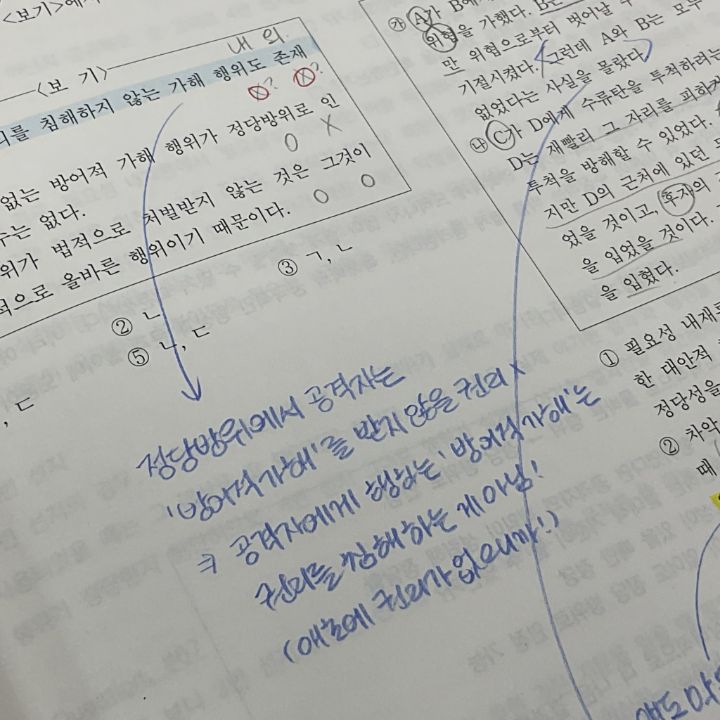 <보기>에
<보 기>
내 외
리를 침해하지 않는 가해 행위도 존재
없는 방어적 가해 행위가 정당방위로 인
수는 없다.
위가 법적으로 처벌받지 않는 것은 그것이
적으로 올바른 행위이기 때문이다.
③ ㄱ, ㄴ
② ㄴ
⑤ ㄴ, ㄷ
, ㄷ
정당방위에서 공격자는
'방어적가해'를 받지 않을 권리 x
⇒ 공격자에게 행하는 '방어적가해'는
권리를 침해하는 게 아님!
(애초에 권리가 없으니까!)
㉮ A가 B에
위협을 가했다. B는
만 위협으로부터 벗어날 수
기절시켰다. 그런데 A와 B는 모두
없었다는 사실을 몰랐다.
㉯ C가 D에게 수류탄을 투척하려는
D는 재빨리 그 자리를 피하거
투척을 방해할 수 있었다.
지만 D의 근처에 있던
었을 것이고, 후자의
을 입었을 것이다.
을 입혔다.
① 필요성 내재
한 대안적
정당성을
② 차악
때